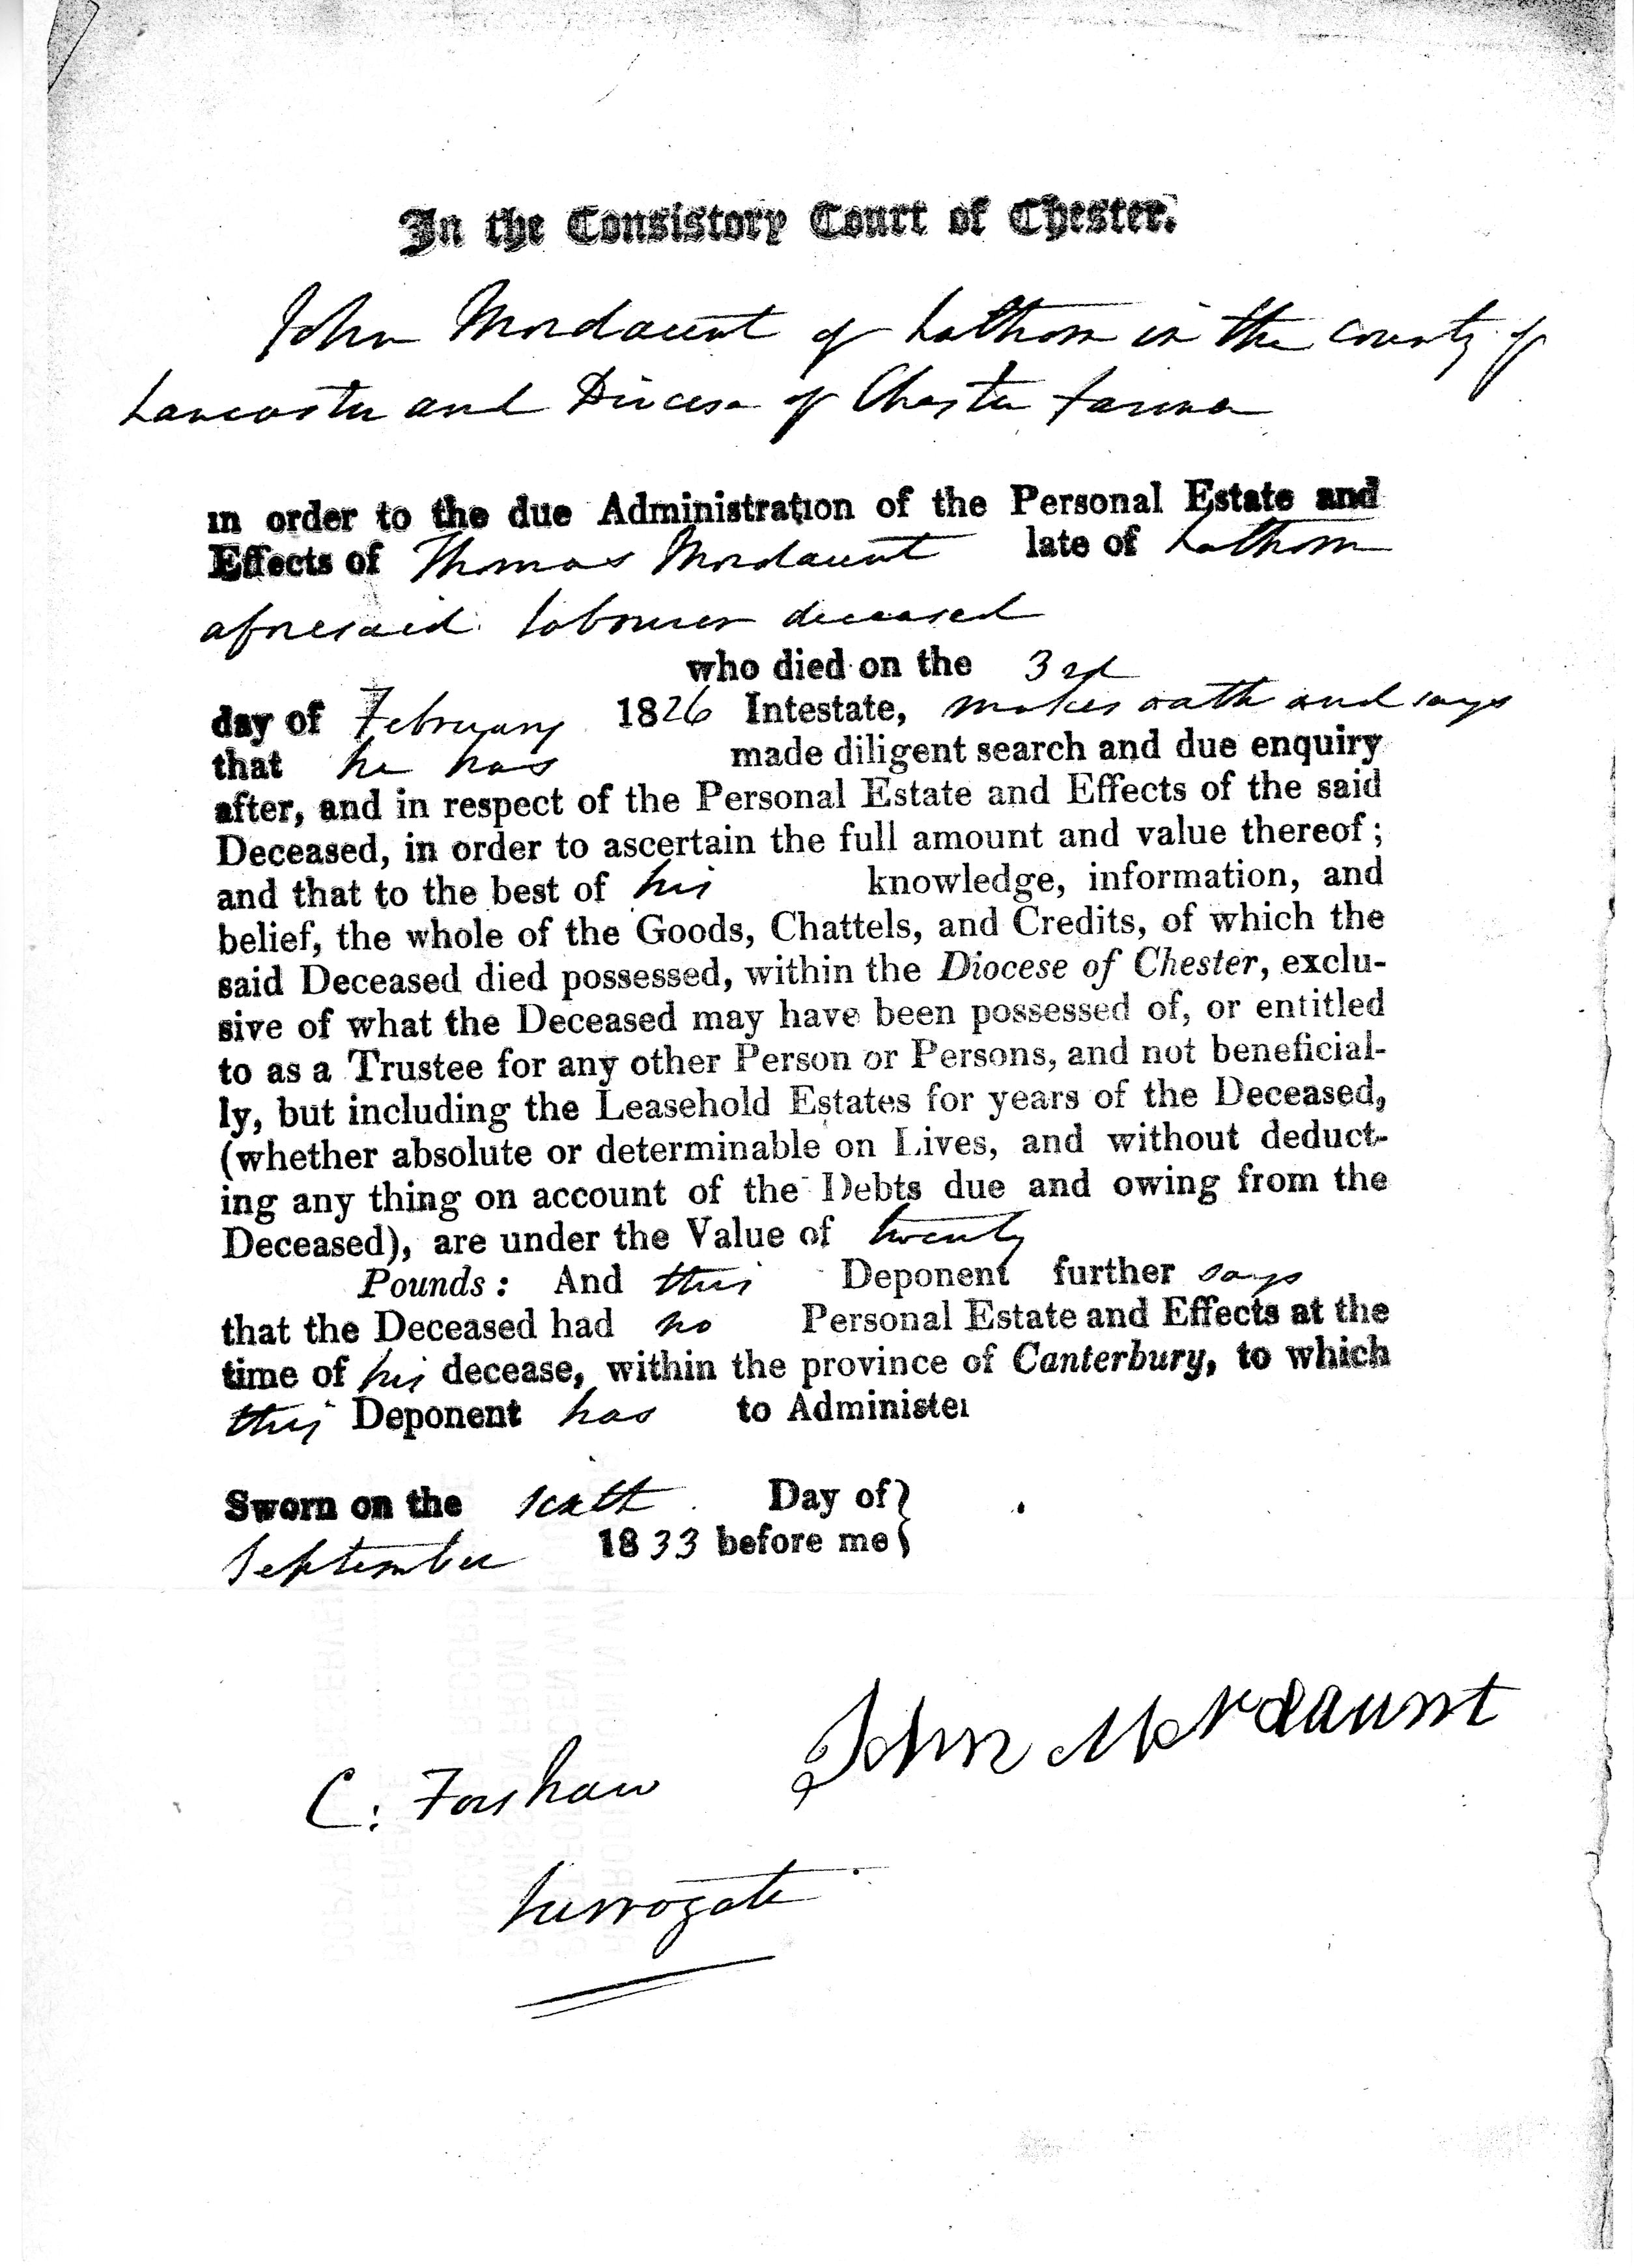 In the Consistory Court of Chester.
John Mordaunt of Lathom in the County of
Lancaster and Diocese of Chester farmer
in order to the due Administration of the Personal Estate and
Effects of Thomas Mordaunt late of Lathom
aforesaid labourer deceased
who died on the 3rd
day of February 1826 Intestate, makes oath and says
that he has made diligent search and due enquiry
after, and in respect of the Personal Estate and Effects of the said
Deceased, in order to ascertain the full amount and value thereof;
and that to the best of his knowledge, information, and
belief, the whole of the Goods, Chattels, and Credits, of which the
said Deceased died possessed, within the Diocese of Chester, exclu-
sive of what the Deceased may have been possessed of, or entitled
to as a Trustee for any other Person or Persons, and not beneficial-
ly, but including the Leasehold Estates for years of the Deceased,
(whether absolute or determinable on Lives, and without deduct-
ing any thing on account of the Debts due and owing from the
Deceased), are under the Value of twenty
Pounds: And this Deponent further says
that the Deceased had no Personal Estate and Effects at the
time of his decease, within the province of Canterbury, to which
this Deponent has to Administer
Sworn on the sixth Day of
September 1833 before me
John Mordaunt
C. Forshaw
Surrogate